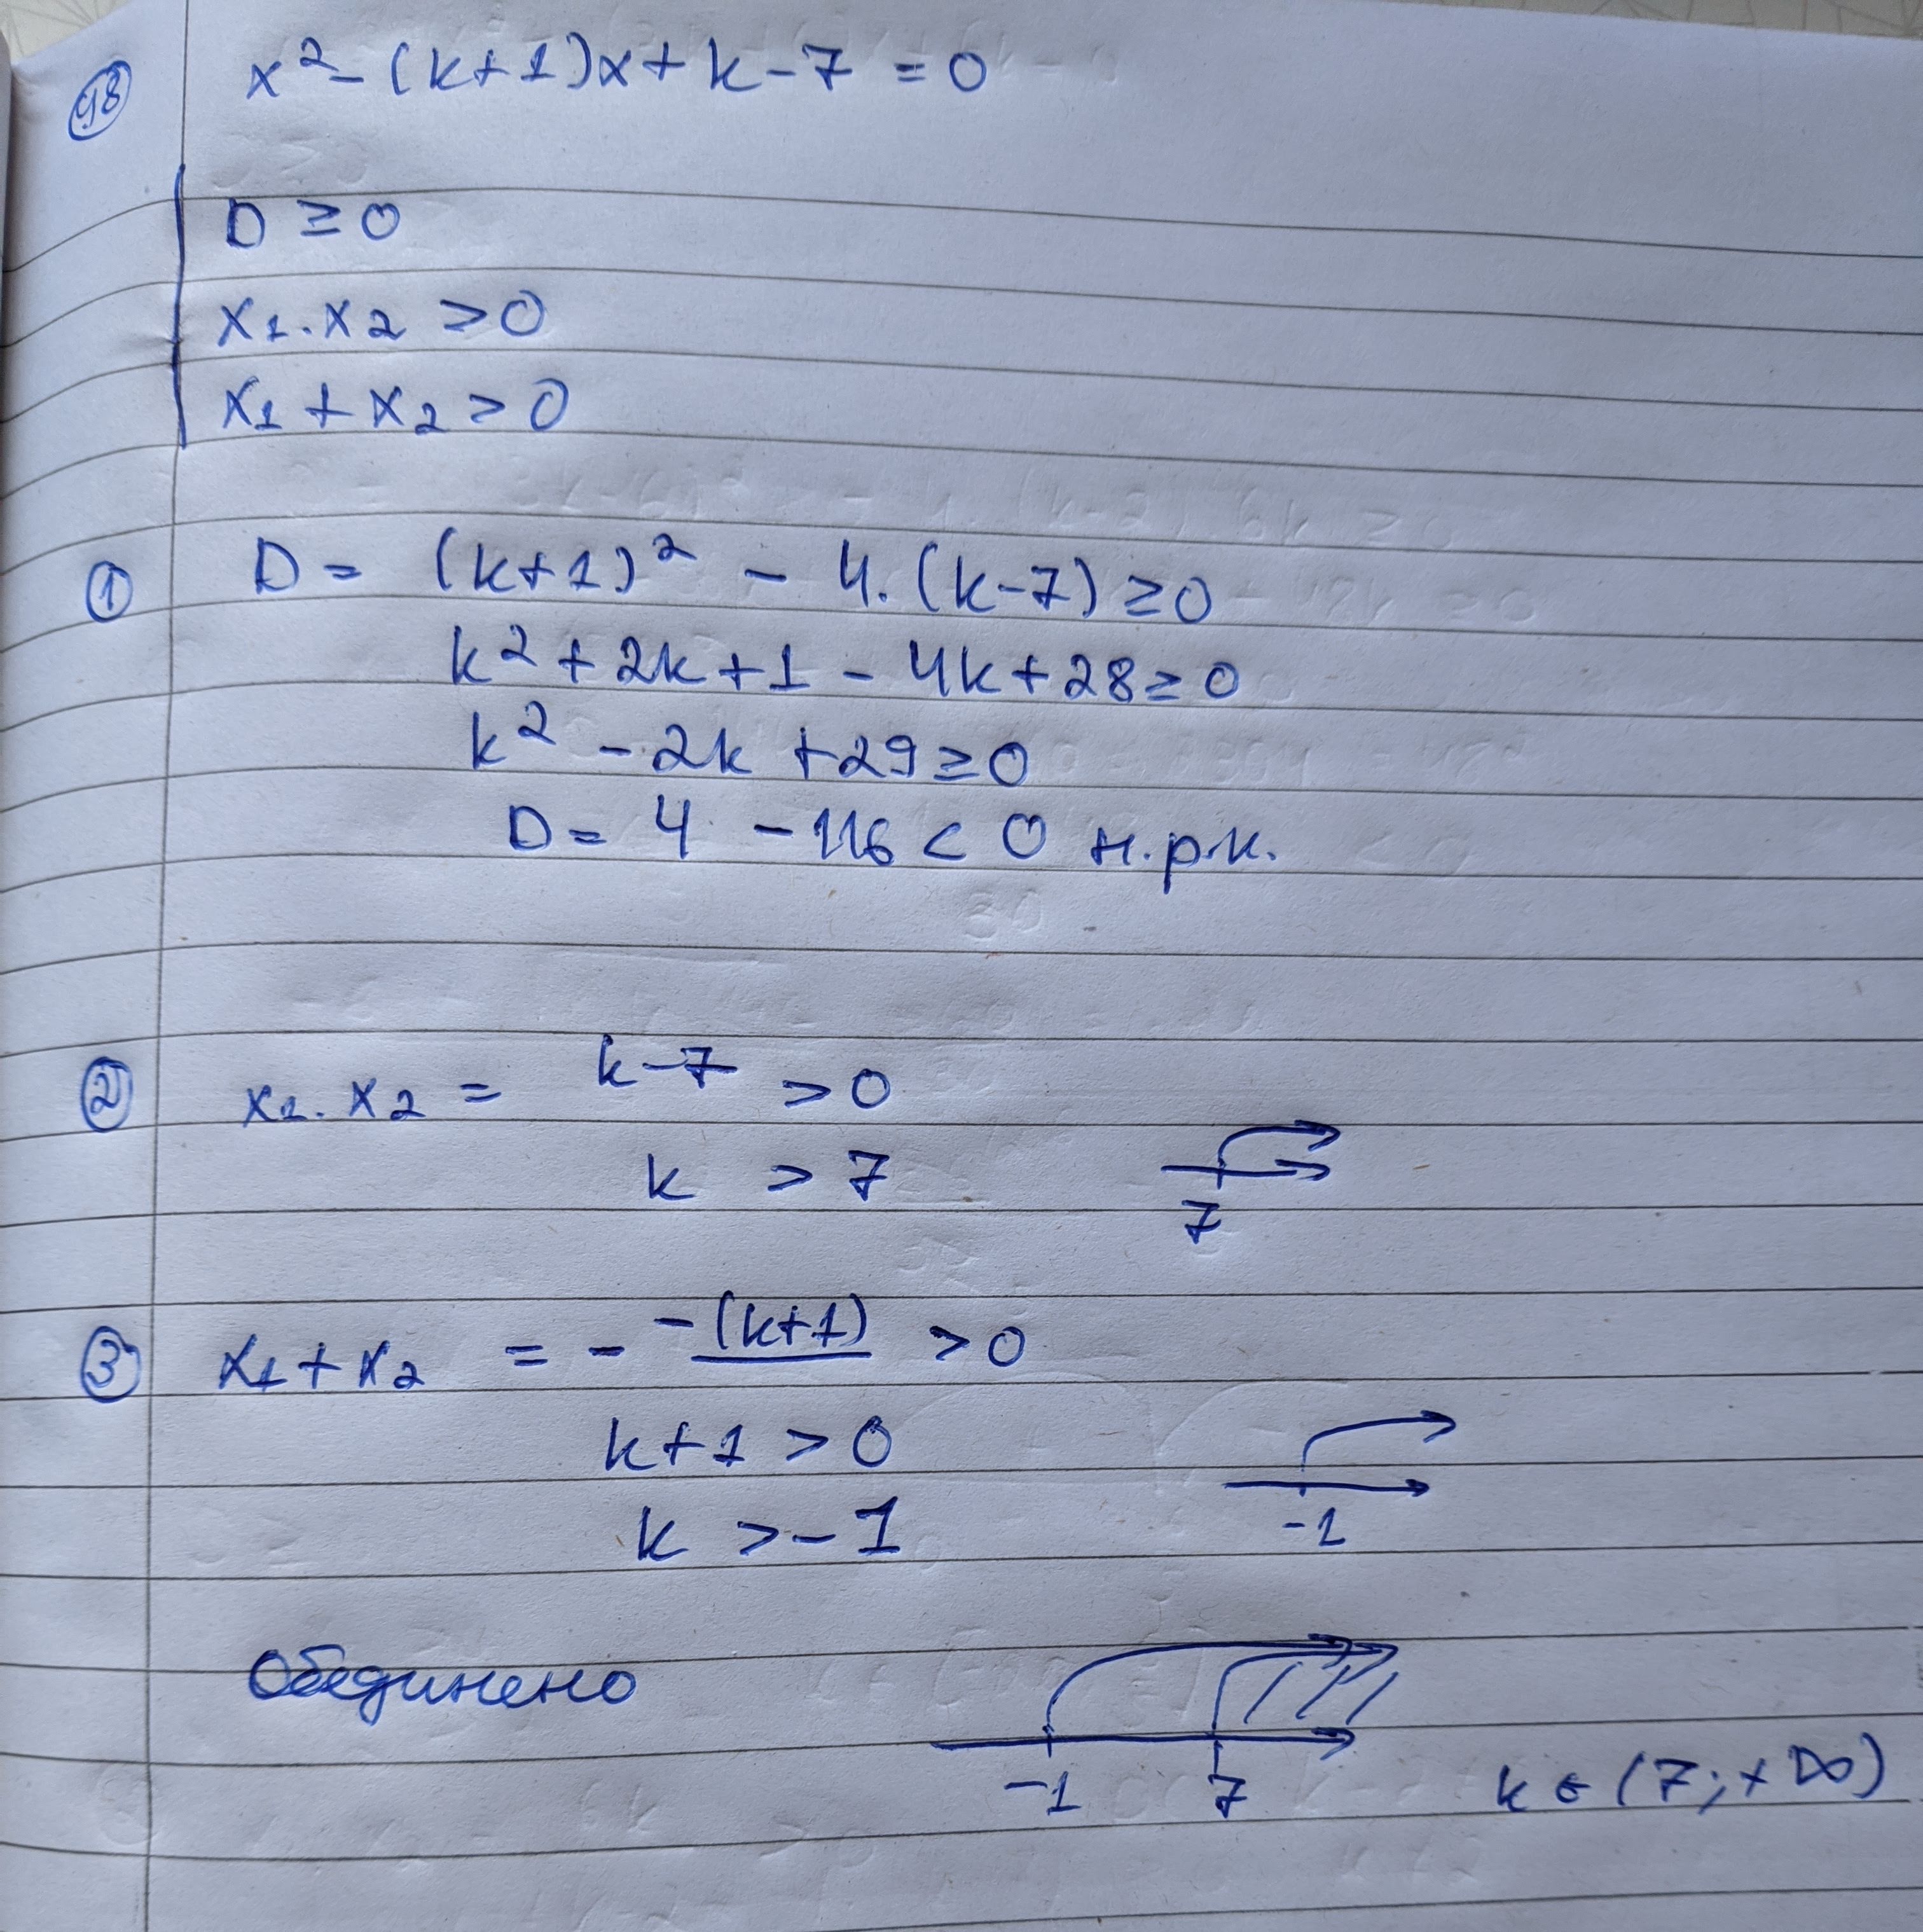 98 x² - (k+1)x + k - 7 = 0
D ≥ 0
x₁.x₂ > 0
x₁ + x₂ > 0
① D = (k+1)² - 4.(k-7) ≥ 0
k² + 2k + 1 - 4k + 28 ≥ 0
k² - 2k + 29 ≥ 0
D = 4 - 116 < 0 н.р.к.
② x₁.x₂ = k-7 > 0
k > 7
7
③ x₁ + x₂ = - -(k+1) > 0
k+1 > 0
k > -1
-1
Обединено
-1 7 k ∈ (7; +∞)